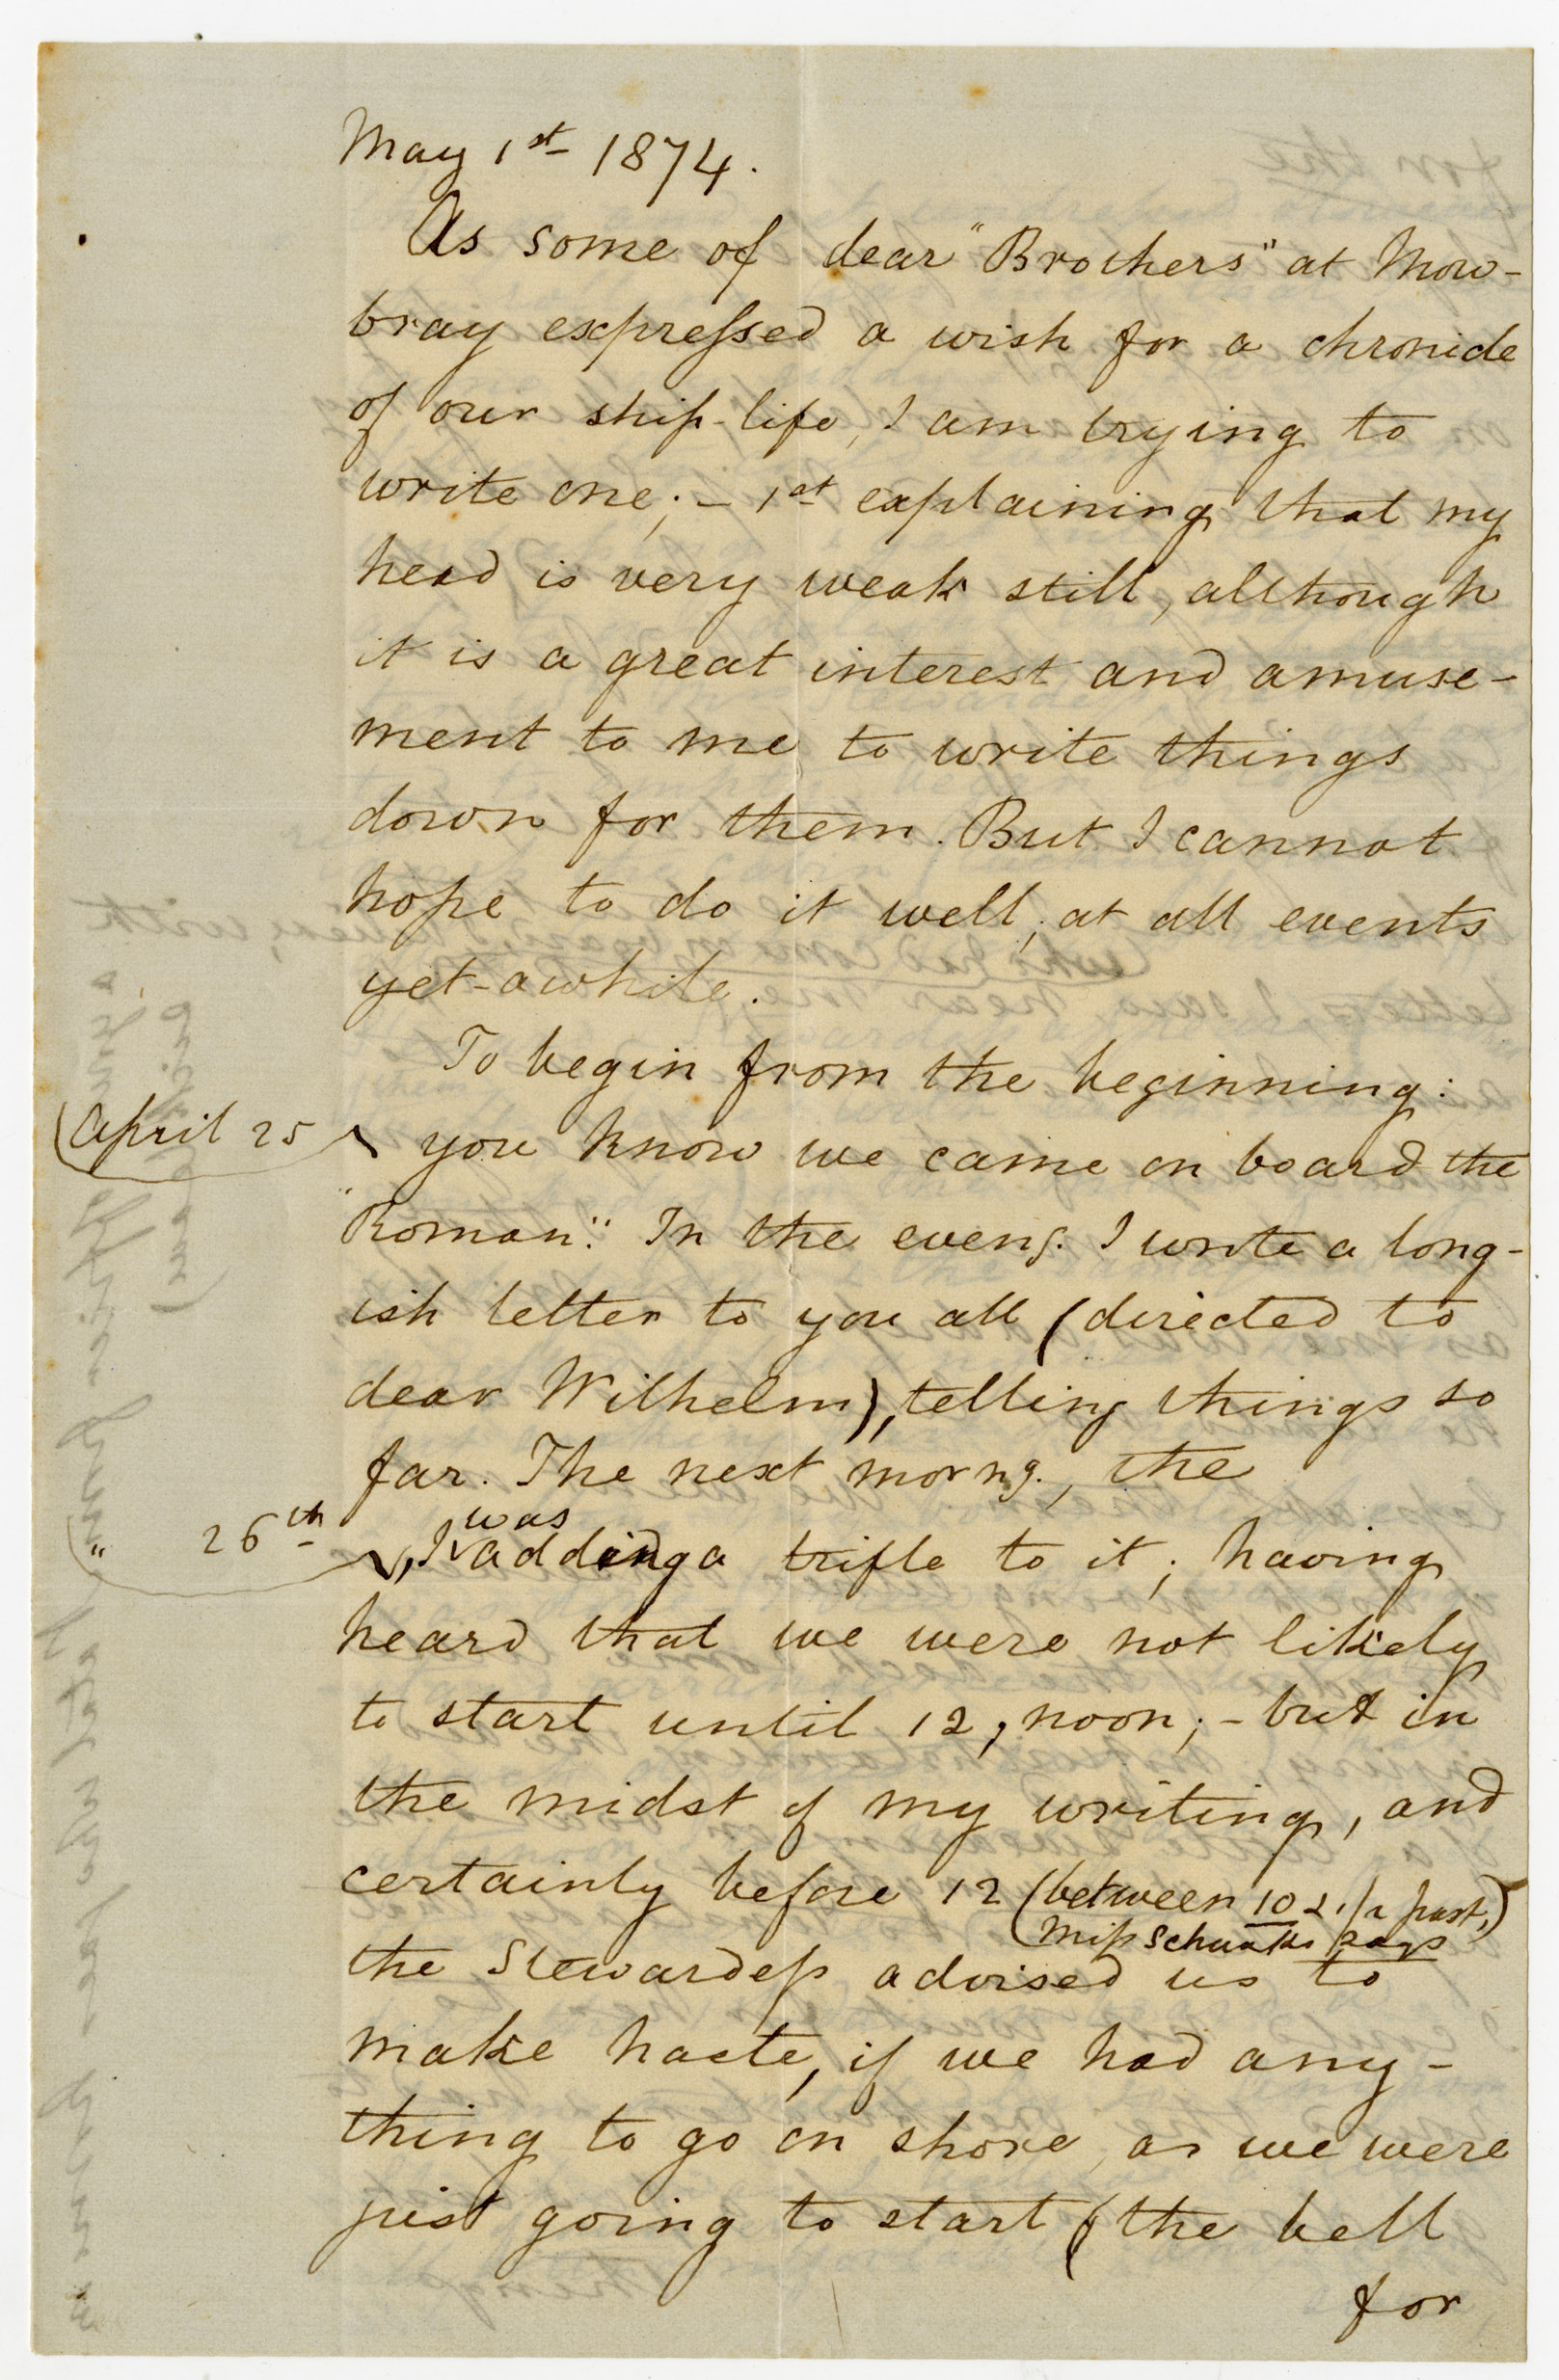 May 1st 1874.
As some of dear "Brothers" at Mow-
bray expressed a wish for a chronicle
of our ship-life, I am trying to
write one; – 1st explaining that my
head is very weak still, although
it is a great interest and amuse-
ment to me to write things
down for them. But I cannot
hope to do it well, at all events
yet-awhile.
To begin from the beginning:
(April 25) you know we came on board the
"Roman". In the eveng. I wrote a long-
ish letter to you all (directed to
dear Wilhelm), telling things so
far. The next morng., the
was
" 26th, I adding a trifle to it; having
heard that we were not likely
to start until 12, noon; – but in
the midst of my writing, and
certainly before 12 (between 10 & 1/2 past,)
(Miss Schunke says
the Stewardess advised us to
make haste, if we had any-
thing to go on shore, as we were
just going to start (the bell
for